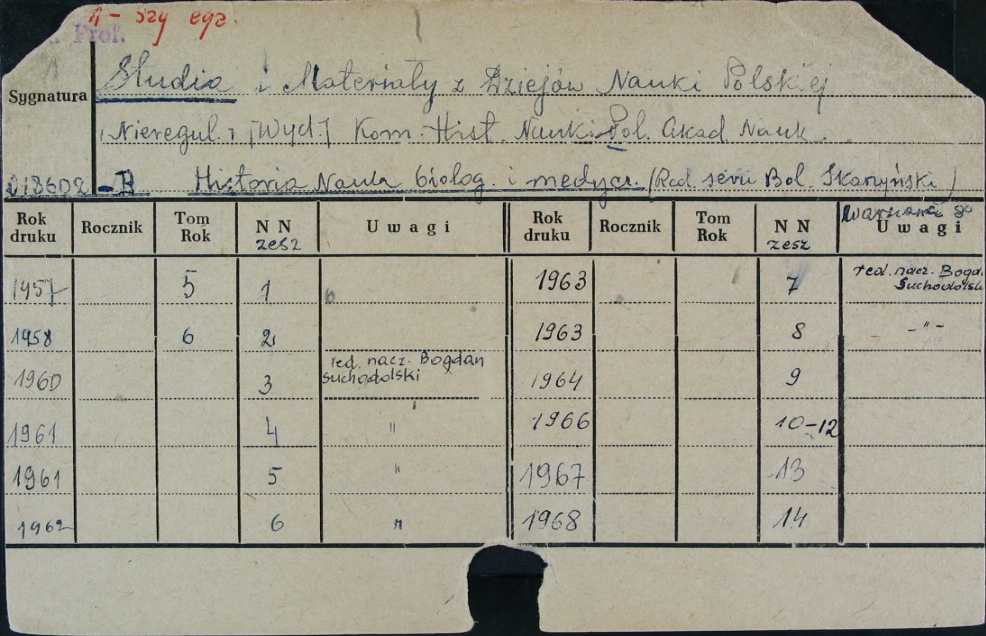 1-szy egz.
Prof.
Studia i Materiały z Dziejów Nauki Polskiej
Sygnatura
(Nieregul.) [Wyd.] Kom. Hist. Nauki Pol. Akad Nauk.
218602 -B Historia Nauk biolog. i medycz. (Red. serii Bol. Skarzyński)
Warszawa 8°
Rok druku Rocznik Tom Rok NN zesz Uwagi Rok druku Rocznik Tom Rok NN zesz Uwagi
1957 5 1 1963 7 red. nacz. Bogd. Suchodolski
1958 6 2 1963 8 -"-
1960 3 red. nacz. Bogdan Suchodolski 1964 9
1961 4 " 1966 10-12
1961 5 " 1967 13
1962 6 " 1968 14